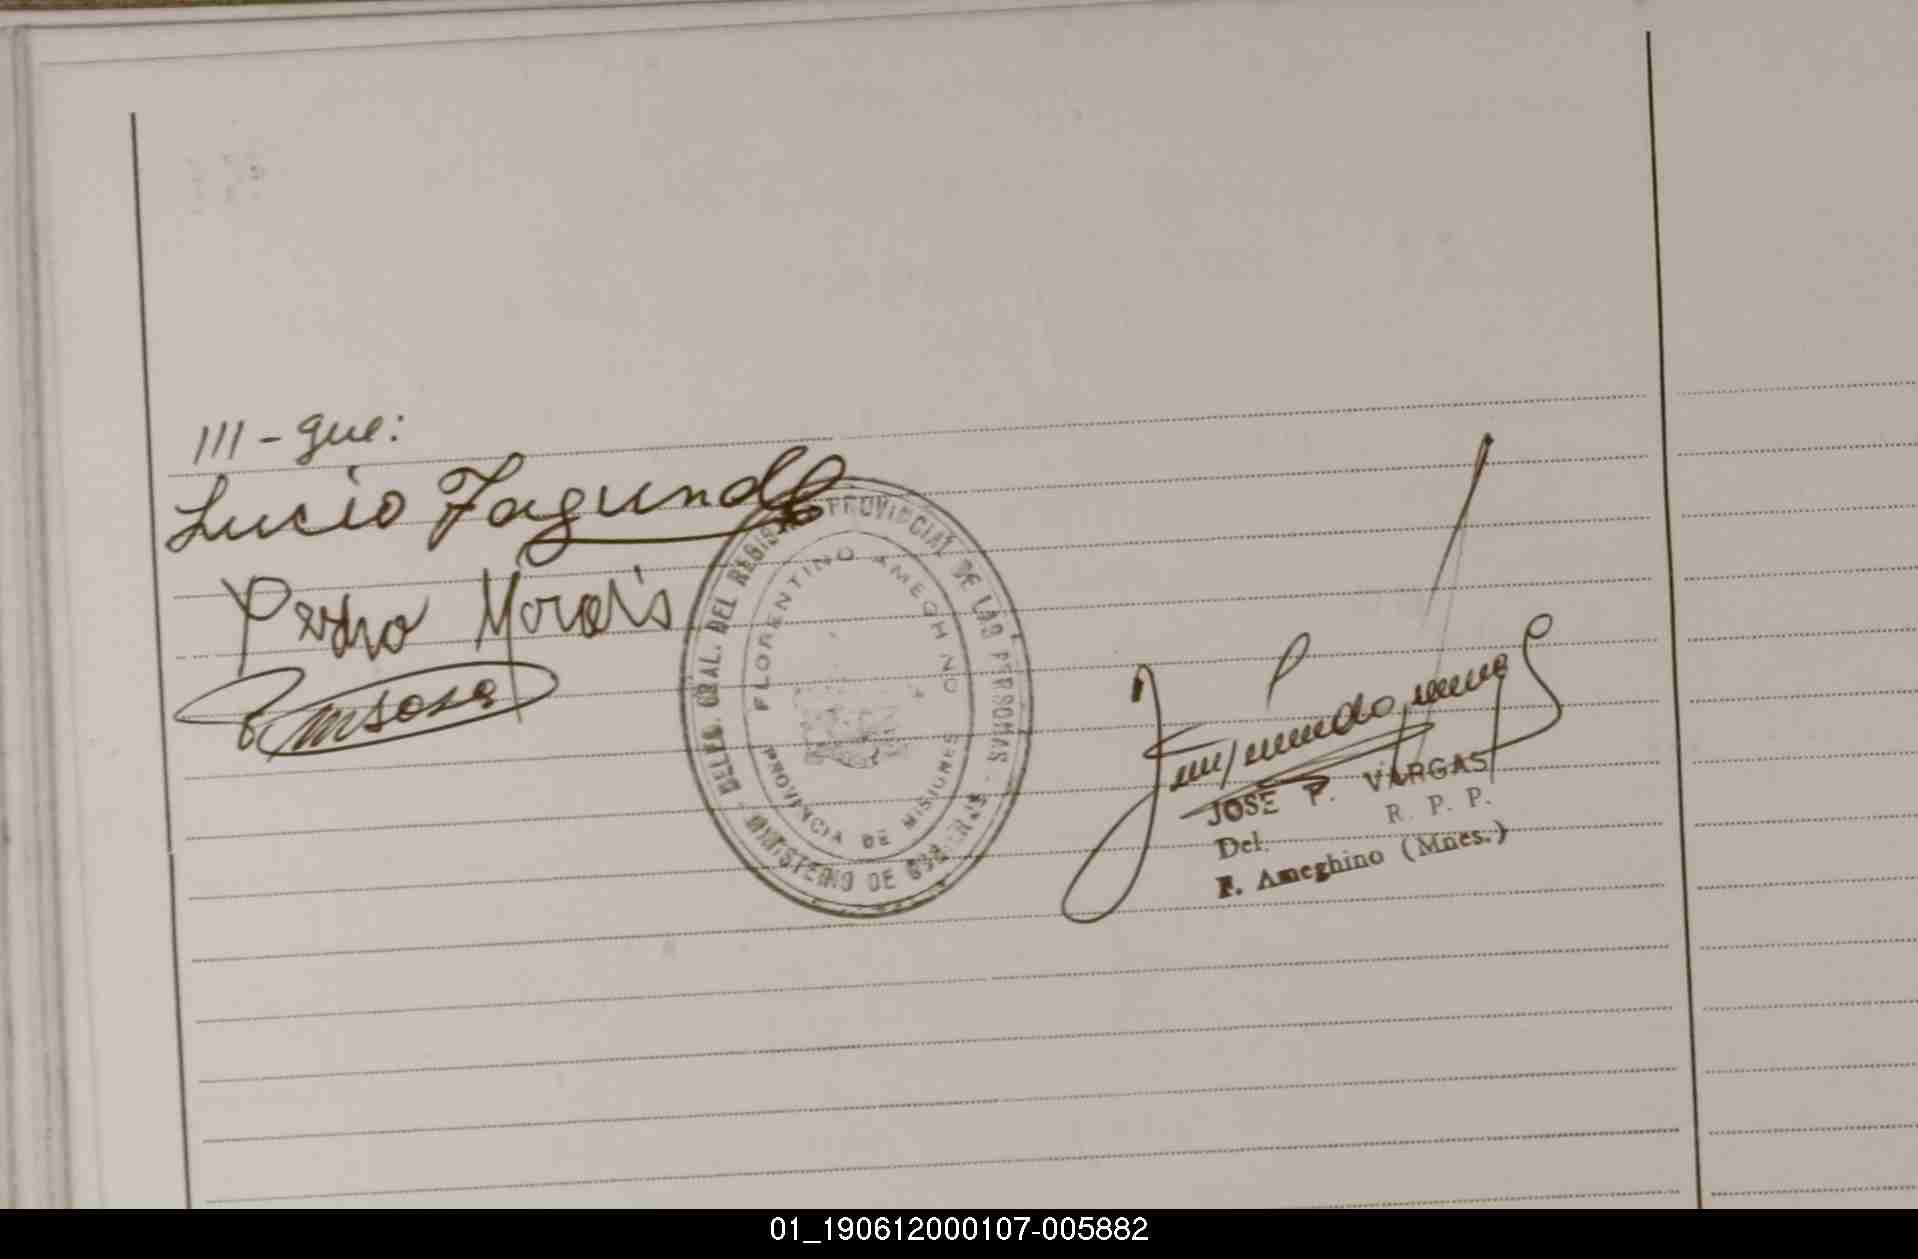 III - que:
Lucio Fagundes
Pedro Morais
DELEG. GRAL. DEL REGISTRO PROVINCIAL DE LAS PERSONAS - MINISTERIO DE GOBIERNO
FLORENTINO AMEGHINO
PROVINCIA DE MISIONES
JOSE P. VARGAS
Del. R. P. P.
F. Ameghino (Mnes.)
01_190612000107-005882